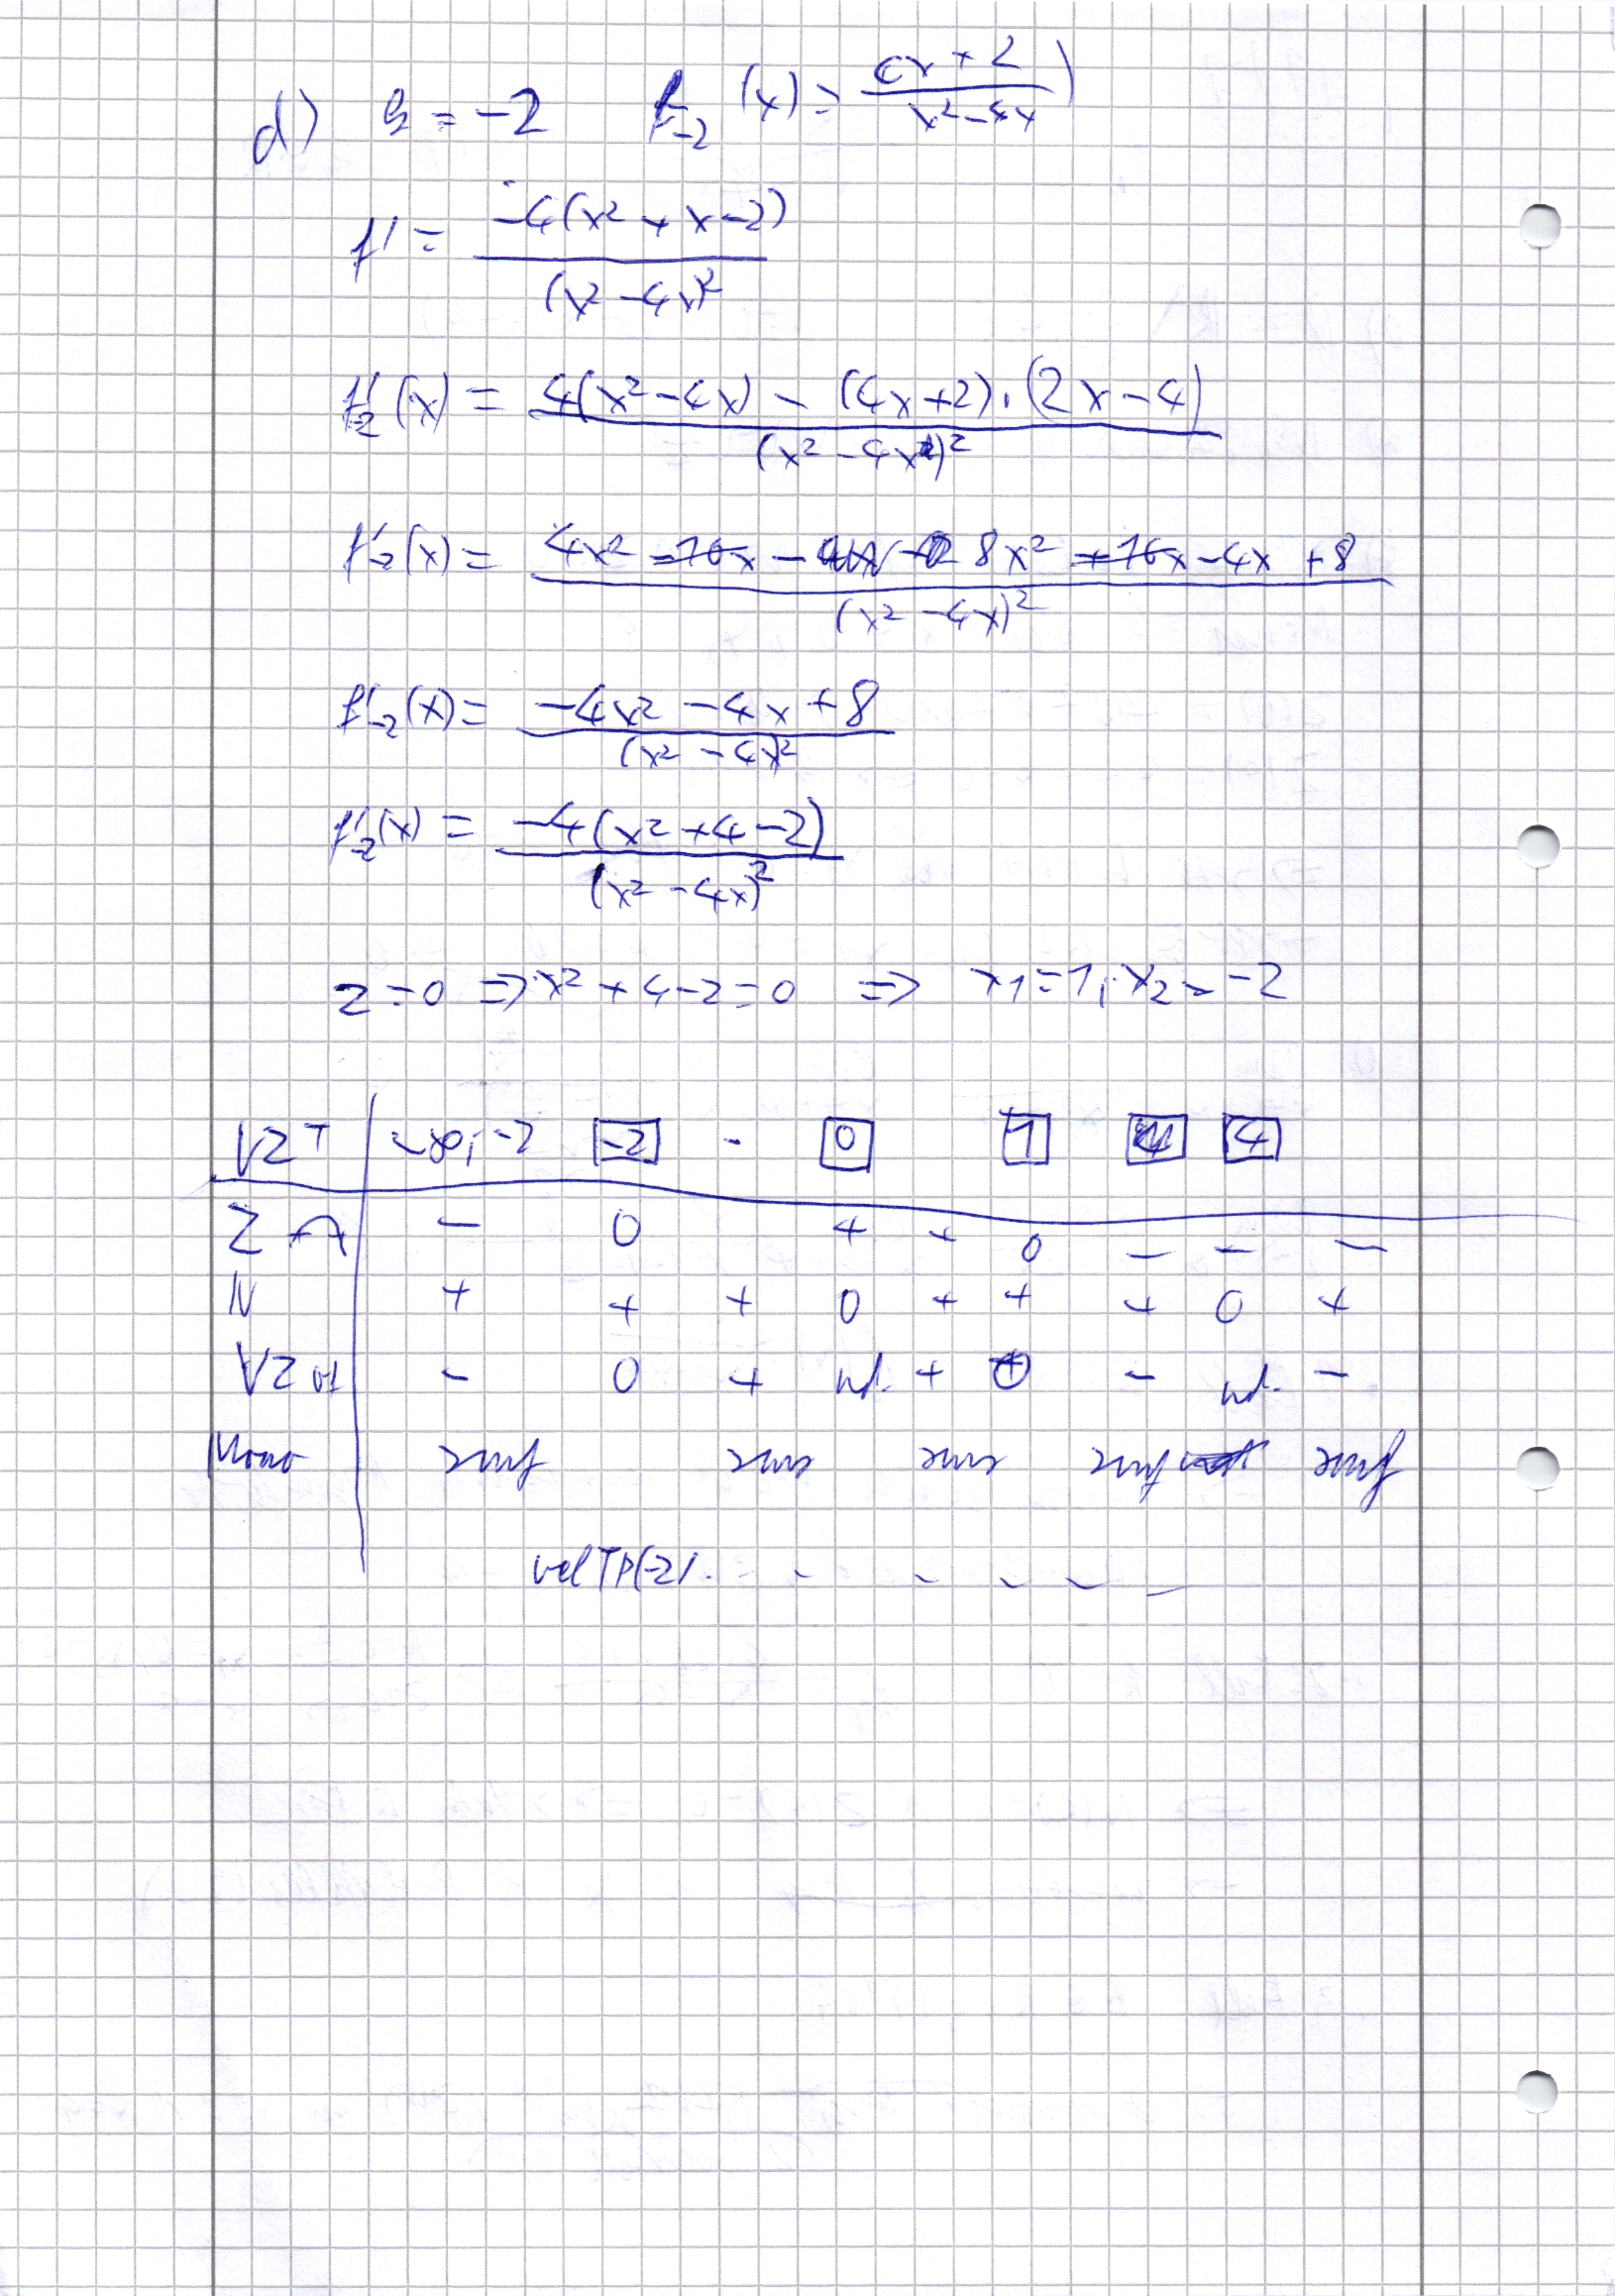 d) a = -2 f-2 (x) = (4x + 2)/(x² - 4x)
f' = -4(x² + x - 2)/(x² - 4x)²
f'-2(x) = 4(x² - 4x) - (4x + 2) · (2x - 4)/(x² - 4x)²
f'-2(x) = 4x² - 16x - 8x² + 16x - 4x + 8/(x² - 4x)²
f'-2(x) = -4x² - 4x + 8/(x² - 4x)²
f'-2(x) = -4(x² + 4 - 2)/(x² - 4x)²
Z = 0 => x² + 4 - 2 = 0 => x1 = 1; x2 = -2
VZT -∞; -2 -2 - 0 1 4
Z - 0 + + 0 - - -
N + + + 0 + + + 0 +
VZ - 0 + nd. + 0 - nd. -
Mono smf sms sms smf smf
rel TP(-2/. - - - - - -